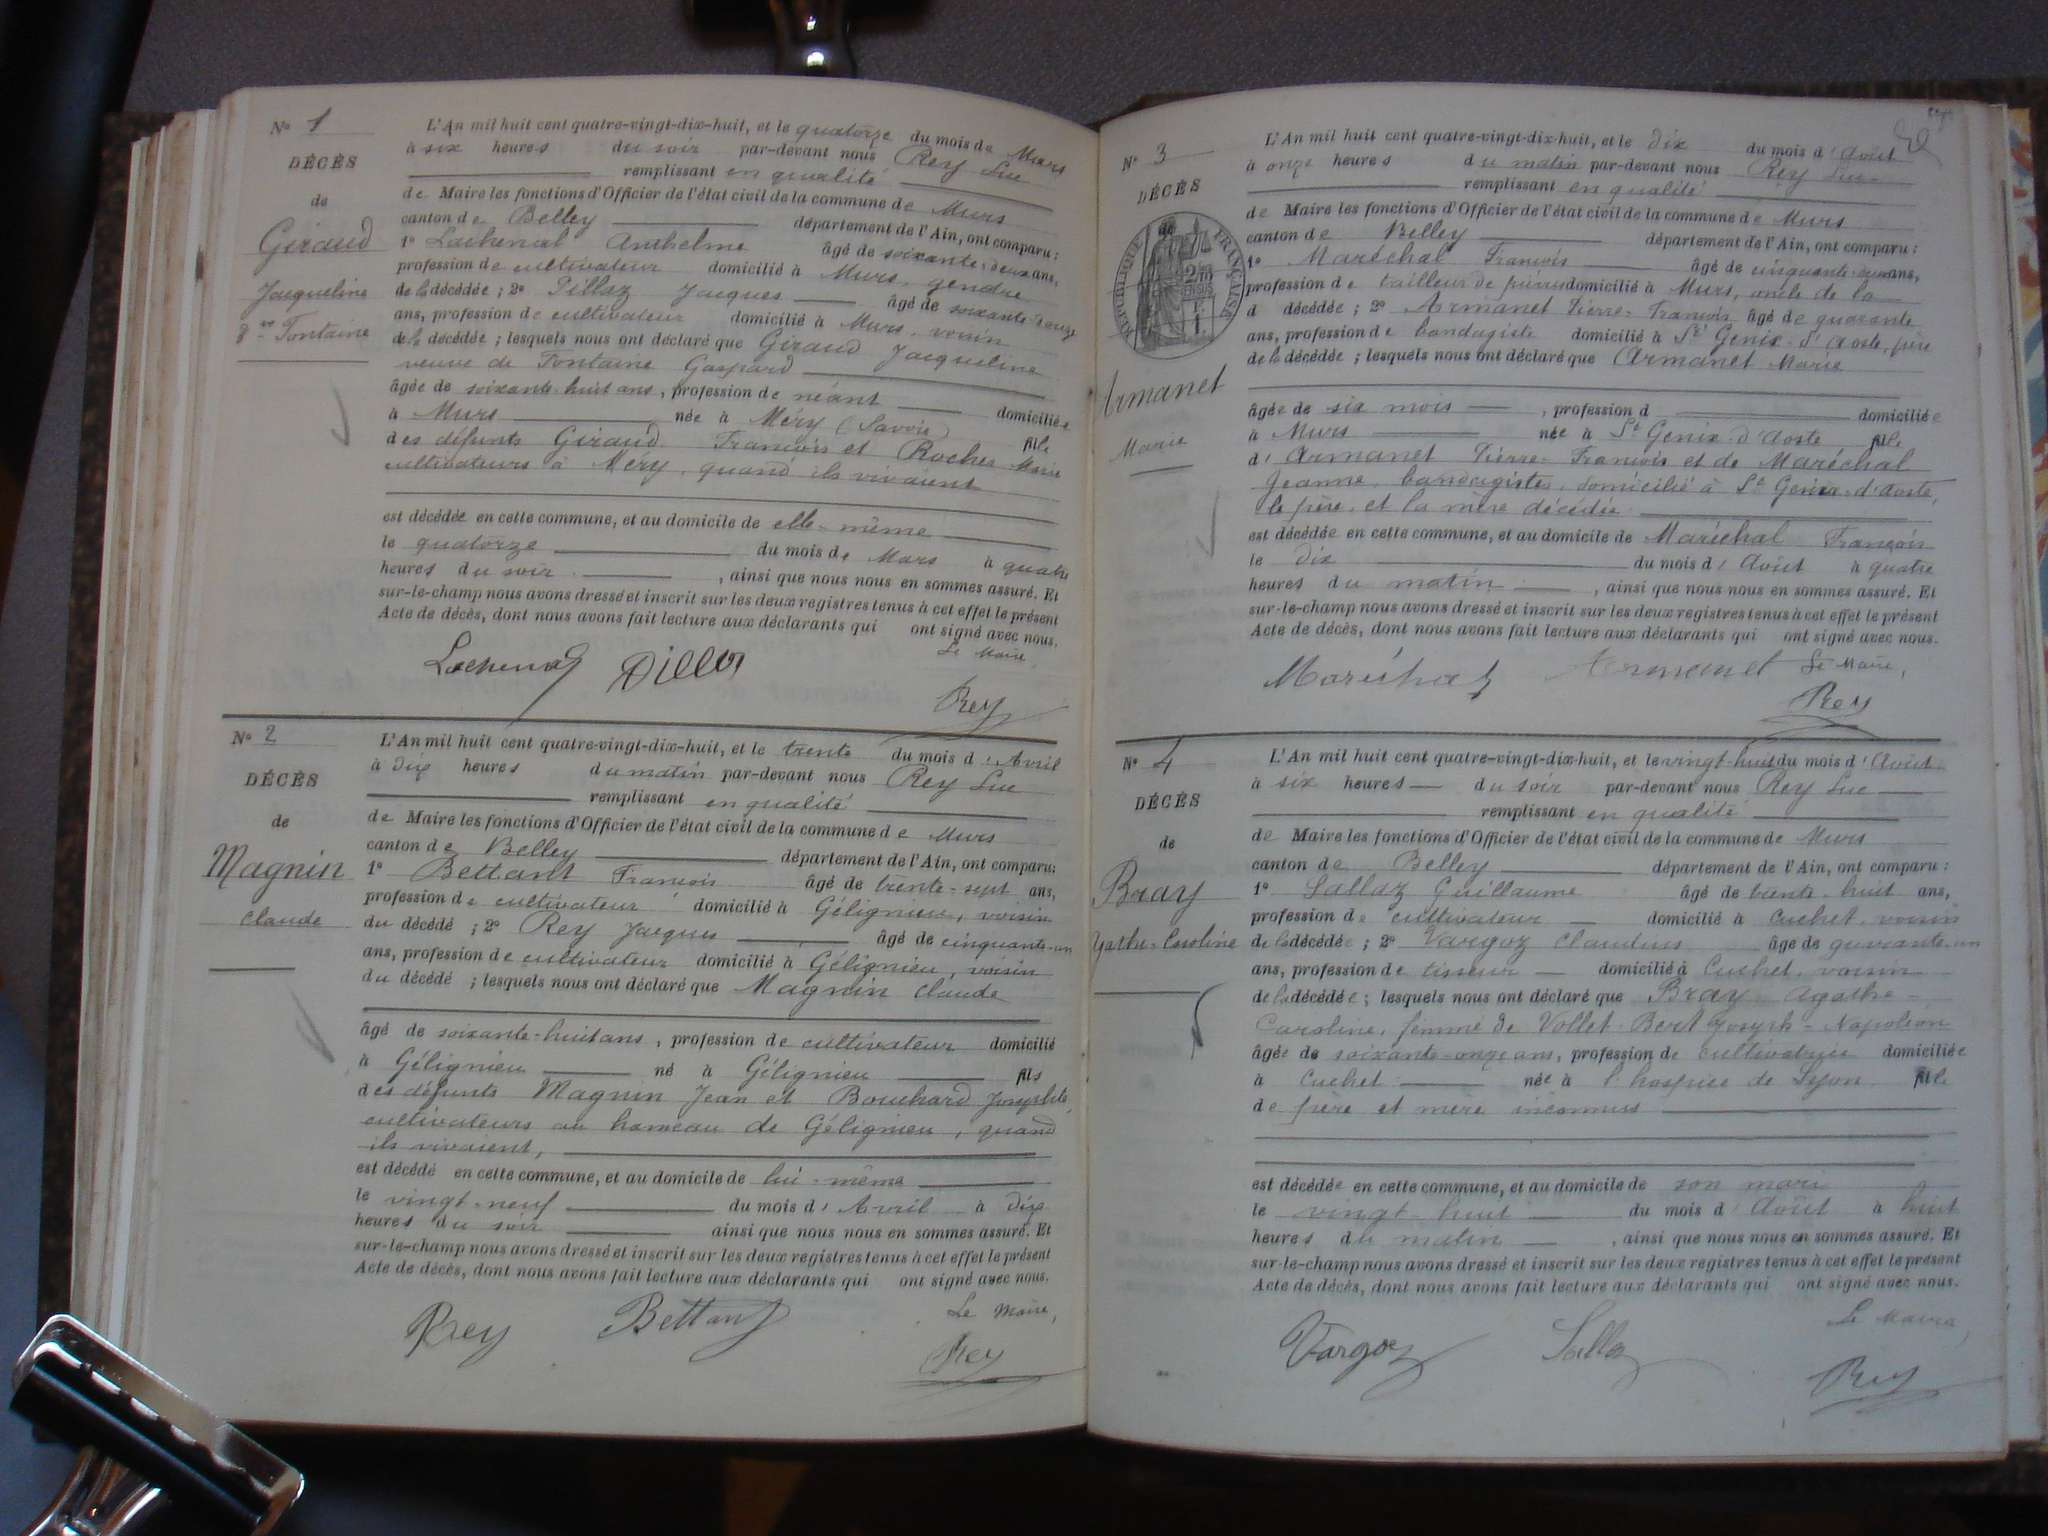 N° 1
DÉCÈS
de
Giraud
Jacqueline
Vve Fontaine
L'An mil huit cent quatre-vingt-dix-huit, et le quatorze du mois de Mars
à six heures du soir par-devant nous Rey Luc
remplissant en qualité
de Maire les fonctions d'Officier de l'état civil de la commune de Murs
canton de Belley département de l'Ain, ont comparu:
1° Lachenal Anthelme âgé de soixante-deux ans,
profession de cultivateur domicilié à Murs, gendre
de la décédée; 2° Pillaz Jacques âgé de soixante-
ans, profession de cultivateur domicilié à Murs, voisin
de la décédée; lesquels nous ont déclaré que Giraud Jacqueline
veuve de Fontaine Gaspard
âgée de soixante-huit ans, profession de néant domiciliée
à Murs née à Méry (Savoie) fille
des défunts Giraud François et Rocher Marie
cultivateurs à Méry, quand ils vivaient
est décédée en cette commune, et au domicile de elle-même
le quatorze du mois de Mars à quatre
heures du soir, ainsi que nous nous en sommes assuré. Et
sur-le-champ nous avons dressé et inscrit sur les deux registres tenus à cet effet le présent
Acte de décès, dont nous avons fait lecture aux déclarants qui ont signé avec nous.
Le Maire,
Lachenal Pillaz Rey
N° 2
DÉCÈS
de
Magnin
Claude
L'An mil huit cent quatre-vingt-dix-huit, et le trente du mois d'Avril
à dix heures du matin par-devant nous Rey Luc
remplissant en qualité
de Maire les fonctions d'Officier de l'état civil de la commune de Murs
canton de Belley département de l'Ain, ont comparu:
1° Bettant François âgé de trente-sept ans,
profession de cultivateur domicilié à Gélignieu, voisin
du décédé; 2° Rey Jacques âgé de cinquante-un
ans, profession de cultivateur domicilié à Gélignieu, voisin
du décédé; lesquels nous ont déclaré que Magnin Claude
âgé de soixante-huit ans, profession de cultivateur domicilié
à Gélignieu né à Gélignieu fils
des défunts Magnin Jean et Bouchard Josephte,
cultivateurs au hameau de Gélignieu, quand
ils vivaient,
est décédé en cette commune, et au domicile de lui-même
le vingt-neuf du mois d'Avril à dix
heures du soir ainsi que nous nous en sommes assuré. Et
sur-le-champ nous avons dressé et inscrit sur les deux registres tenus à cet effet le présent
Acte de décès, dont nous avons fait lecture aux déclarants qui ont signé avec nous.
Le Maire,
Rey Bettant Rey
N° 3
DÉCÈS
de
RÉPUBLIQUE FRANÇAISE
Armanet
Marie
L'An mil huit cent quatre-vingt-dix-huit, et le dix du mois d'Août
à onze heures du matin par-devant nous Rey Luc
remplissant en qualité
de Maire les fonctions d'Officier de l'état civil de la commune de Murs
canton de Belley département de l'Ain, ont comparu:
1° Maréchal François âgé de cinquante- ans,
profession de tailleur de pierres domicilié à Murs, oncle de la
d décédée; 2° Armanet Pierre-François âgé de quarante
ans, profession de bandagiste domicilié à St Genix-d'Aoste, père
de la décédée; lesquels nous ont déclaré que Armanet Marie
âgée de six mois, profession d domiciliée
à Murs née à St Genix-d'Aoste fille
d'Armanet Pierre-François et de Maréchal
Jeanne, bandagiste, domicilié à St Genix-d'Aoste,
le père, et la mère décédée
est décédée en cette commune, et au domicile de Maréchal François
le dix du mois d'Août à quatre
heures du matin, ainsi que nous nous en sommes assuré. Et
sur-le-champ nous avons dressé et inscrit sur les deux registres tenus à cet effet le présent
Acte de décès, dont nous avons fait lecture aux déclarants qui ont signé avec nous.
Maréchal Armanet Le Maire,
Rey
N° 4
DÉCÈS
de
Bray
Agathe-Caroline
L'An mil huit cent quatre-vingt-dix-huit, et le vingt-huit du mois d'Août
à six heures du soir par-devant nous Rey Luc
remplissant en qualité
de Maire les fonctions d'Officier de l'état civil de la commune de Murs
canton de Belley département de l'Ain, ont comparu:
1° Sallaz Guillaume âgé de trente-huit ans,
profession de cultivateur domicilié à Cuchet, voisin
de la décédée; 2° Vargoz Claudius âgé de quarante-un
ans, profession de tisseur domicilié à Cuchet, voisin
de la décédée; lesquels nous ont déclaré que Bray Agathe-
Caroline, femme de Vollet-Bert Joseph-Napoléon
âgée de soixante-onze ans, profession de cultivatrice domiciliée
à Cuchet née à l'hospice de Lyon fille
de père et mère inconnus
est décédée en cette commune, et au domicile de son mari
le vingt-huit du mois d'Août à huit
heures du matin, ainsi que nous nous en sommes assuré. Et
sur-le-champ nous avons dressé et inscrit sur les deux registres tenus à cet effet le présent
Acte de décès, dont nous avons fait lecture aux déclarants qui ont signé avec nous.
Le Maire,
Vargoz Sallaz Rey